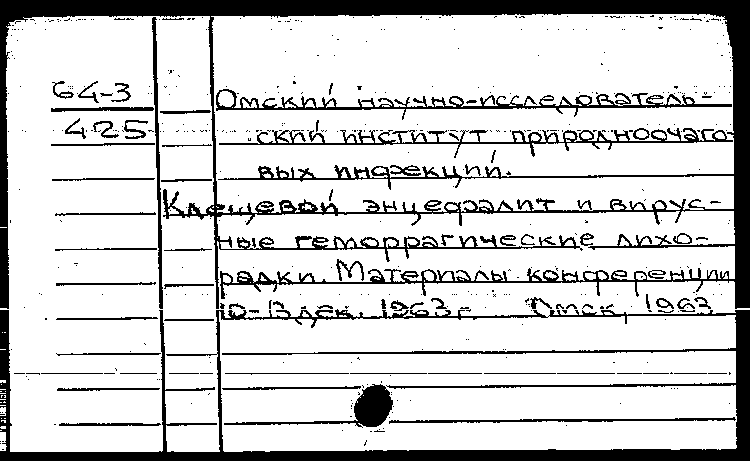 64-3
425
Омский научно-исследователь-
ский институт природноочаго-
вых инфекций.
Клещевой энцефалит и вирус-
ные геморрагические лихо-
радки. Материалы конференции
10-13 дек. 1963 г. Омск, 1963